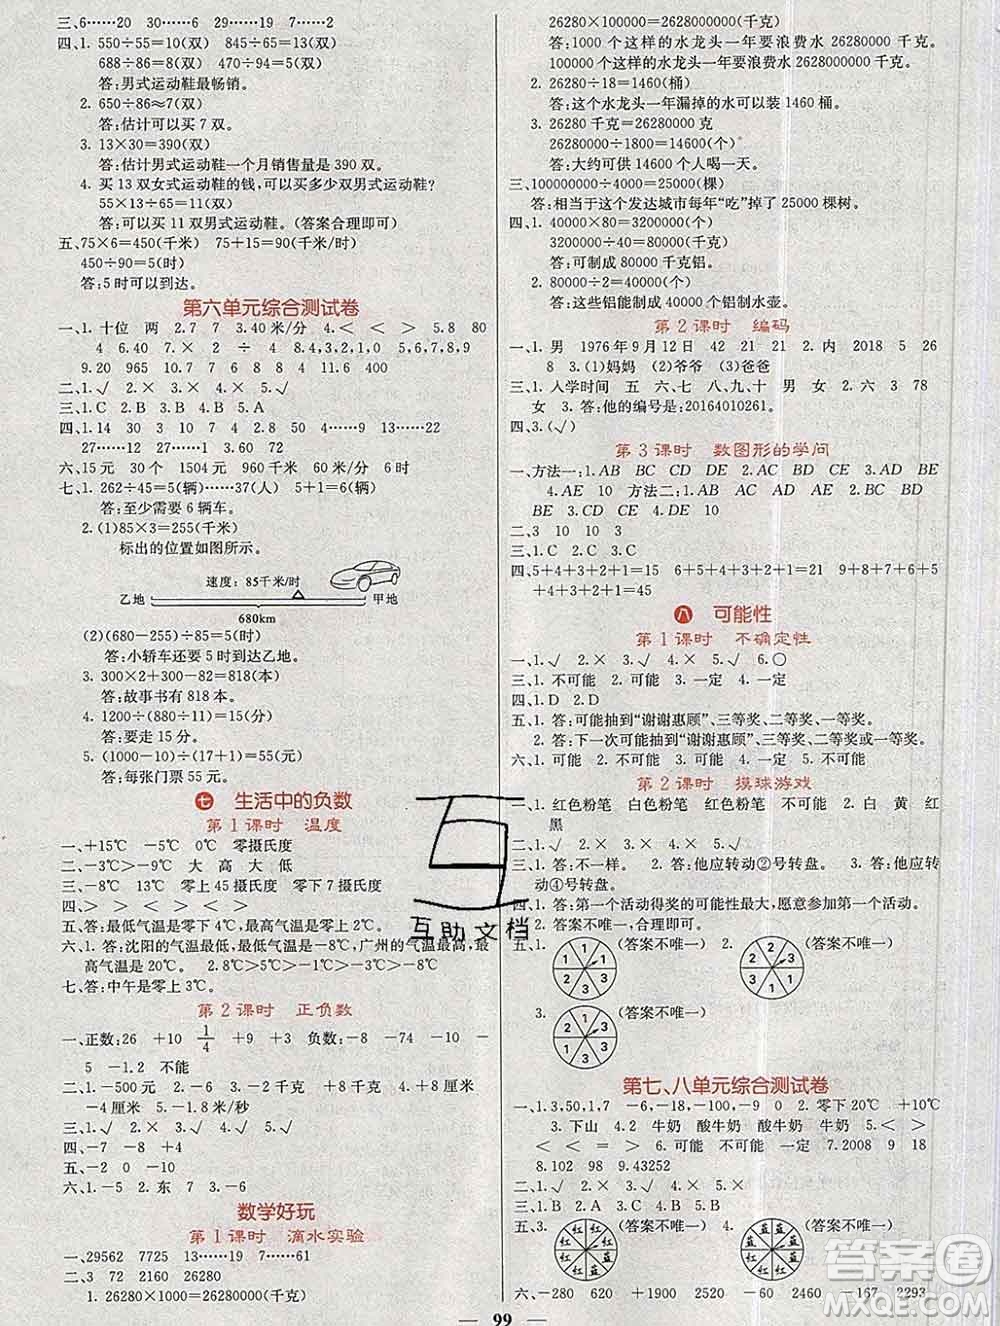 三、6……20　30……6　29……19　7……57
四、1. 550÷55=10(双)　845÷65=13(双)
688÷86=8(双)　470÷94=5(双)
答:男式运动鞋最畅销。
2. 650÷86≈7(双)
答:估计可以买 7 双。
3. 13×30=390(双)
答:估计男式运动鞋一个月销售量是 390 双。
4. 买 13 双女式运动鞋的钱,可以买多少双男式运动鞋?
55×13÷65=11(双)
答:可以买 11 双男式运动鞋。(答案合理即可)
五、75×6=450(千米)　75+15=90(千米/时)
450÷90=5(时)
答:5 时可以到达。
第六单元综合测试卷
一、1. 十位　两　2. 7　7　3. 40 米/分　4. <　<　>　5. 8　80
4　6. 40　7. ×　2　÷　4　8. 4,3,2,1,0　6,5,4,3,2,1,0
9. 20　965　10. 7　860　11. 120　6
二、1. √　2. ×　3. ×　4. ×　5. √
三、1. C　2. B　3. A　4. B　5. A
四、1. 14　30　3　10　7　4　2. 50　4……50　4……9　23……12
27……12　27……1　3. 60　72
六、15 元　30 个　1504 元　960 千米　60 千米/时　6 时
七、1. 262÷45=5(辆)……37(人)　5+1=6(辆)
答:至少需要 6 辆车。
2. (1)85×3=255(千米)
标出的位置如图所示。
速度：85千米/时
乙地　甲地
680km
(2)(680-255)÷85=5(时)
答:小轿车还要 5 时到达乙地。
3. 300×2+300-82=818(本)
答:故事书有 818 本。
4. 1200÷(880÷11)=15(分)
答:要走 15 分。
5. (1000-10)÷(17+1)=55(元)
答:每张门票 55 元。
七　生活中的负数
第 1 课时　温度
一、+15℃　-5℃　0℃　零摄氏度
二、-3℃>-9℃　大　高　大　低
三、-8℃　13℃　零上 45 摄氏度　零下 7 摄氏度
四、>　>　<　>　<　>
五、答:最低气温是零下 4℃,最高气温是零上 5℃。
六、1. 答:沈阳的气温最低,最低气温是-8℃,广州的气温最高,最
高气温是 20℃。　2. 8℃>5℃>-1℃>-2℃>-8℃
七、答:中午是零上 3℃。
第 2 课时　正负数
一、正数:26　+10　1/4　+9　+3　负数:-8　-74　-10　-
5　-1.2　不能
二、1. -500 元　2. +8 千克　+3 千克　-2 千克　0 千克　3. +4 厘米
-4 厘米　4. +2 米/秒　-2 米/秒　5. -8 米/秒
三、1. √　2. √　3. √　4. √
四、-7　-8　+4
五、-2　0　-10
六、1. -5　2. 东　7　3. -6
数学好玩
第 1 课时　滴水实验
一、29562　7725　13……19　7……61
二、3　72　2160　26280
1. 26280×1000=26280000(千克)
26280×100000=2628000000(千克)
答:1000 个这样的水龙头一年要浪费水 26280000 千克。
100000 个这样的水龙头一年要浪费水 2628000000 千克。
2. 26280÷18=1460(桶)
答:这个水龙头一年漏掉的水可以装 1460 桶。
3. 26280 千克=26280000 克
26280000÷1800=14600(个)
答:大约可供 14600 个人喝一天。
三、100000000÷4000=25000(棵)
答:相当于这个发达城市每年“吃”掉了 25000 棵树。
四、1. 40000×80=3200000(个)
3200000÷40=80000(千克)
答:可制成 80000 千克铝。
2. 80000÷2=40000(个)
答:这些铝能制成 40000 个铝制水壶。
第 2 课时　编码
一、1. 男　1976 年 9 月 12 日　42　21　21　2. 内　2018　5　26
8　3. (1)妈妈　(2)爷爷　(3)爸爸
三、1. 入学时间　五　六、七　八、九、十　男　女　2. 06　3　78
女　3. 答:他的编号是:20164010261。
四、3. (√)
第 3 课时　数图形的学问
一、方法一:1. AB　BC　CD　DE　2. AC　BD　CE　3. AD　BE
4. AE　10　方法二:1. AB　AC　AD　AE　2. BC　BD
BE　3. CD　CE　4. DE　10
二、3　10　10　3
三、1. C　2. C　3. C　4. C
四、5+4+3+2+1=15　6+5+4+3+2+1=21　9+8+7+6+5
+4+3+2+1=45
八　可能性
第 1 课时　不确定性
一、1. √　2. ×　3. √　4. ×　5. √　6. ○
三、1. 不可能　2. 可能　3. 一定　4. 一定
四、1. D　2. D
五、1. 答:可能抽到“谢谢惠顾”、三等奖、二等奖、一等奖。
2. 答:下一次可能抽到“谢谢惠顾”、三等奖、二等奖或一等奖。
六、1. 可能　2. 可能　不可能　不可能　可能
第 2 课时　摸球游戏
一、1. 红色粉笔　白色粉笔　红色粉笔　不可能　2. 白　黄　红
黑
二、1. √　2. ×　3. ×　4. ×　5. ×
三、1. 答:不一样。　2. 答:他应转动②号转盘。　3. 答:他应转
动④号转盘。
四、1. 答:第一个活动得奖的可能性最大,愿意参加第一个活动。
2. 答案不唯一,合理即可。
五、1. (答案不唯一)　2. (答案不唯一)
3. (答案不唯一)
第七、八单元综合测试卷
一、1. 3,50,1,7　-6,-18,-100,-9　0　2. 零下 20℃　+10℃
3. 下山　4. 2　牛奶　酸牛奶　酸牛奶　牛奶　5. <　>
<　<　=　>　6. 可能　不可能　一定　7. 2008　9　18
8. 102　98　9. 43252
二、1. √　2. ×　3. √　4. √　5. √
三、1. B　2. A　3. C　4. B　5. A
五、3. (答案不唯一)　4. (答案不唯一)
六、-280　620　+1900　2520　-2450　70　-167　2293
互助文档
答案圈
MXQE.COM
— 99 —